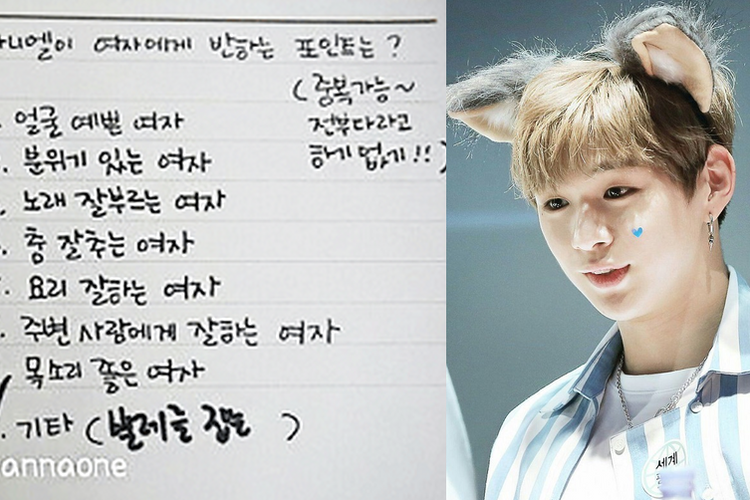 니엘이 여자에게 반하는 포인트는?
(중복가능~
전부다라고
하기 없기!!)
얼굴 예쁜 여자
분위기 있는 여자
노래 잘부르는 여자
춤 잘추는 여자
요리 잘하는 여자
주변 사람에게 잘하는 여자
목소리 좋은 여자
기타 (벌레를 잡는)
annaone
세계